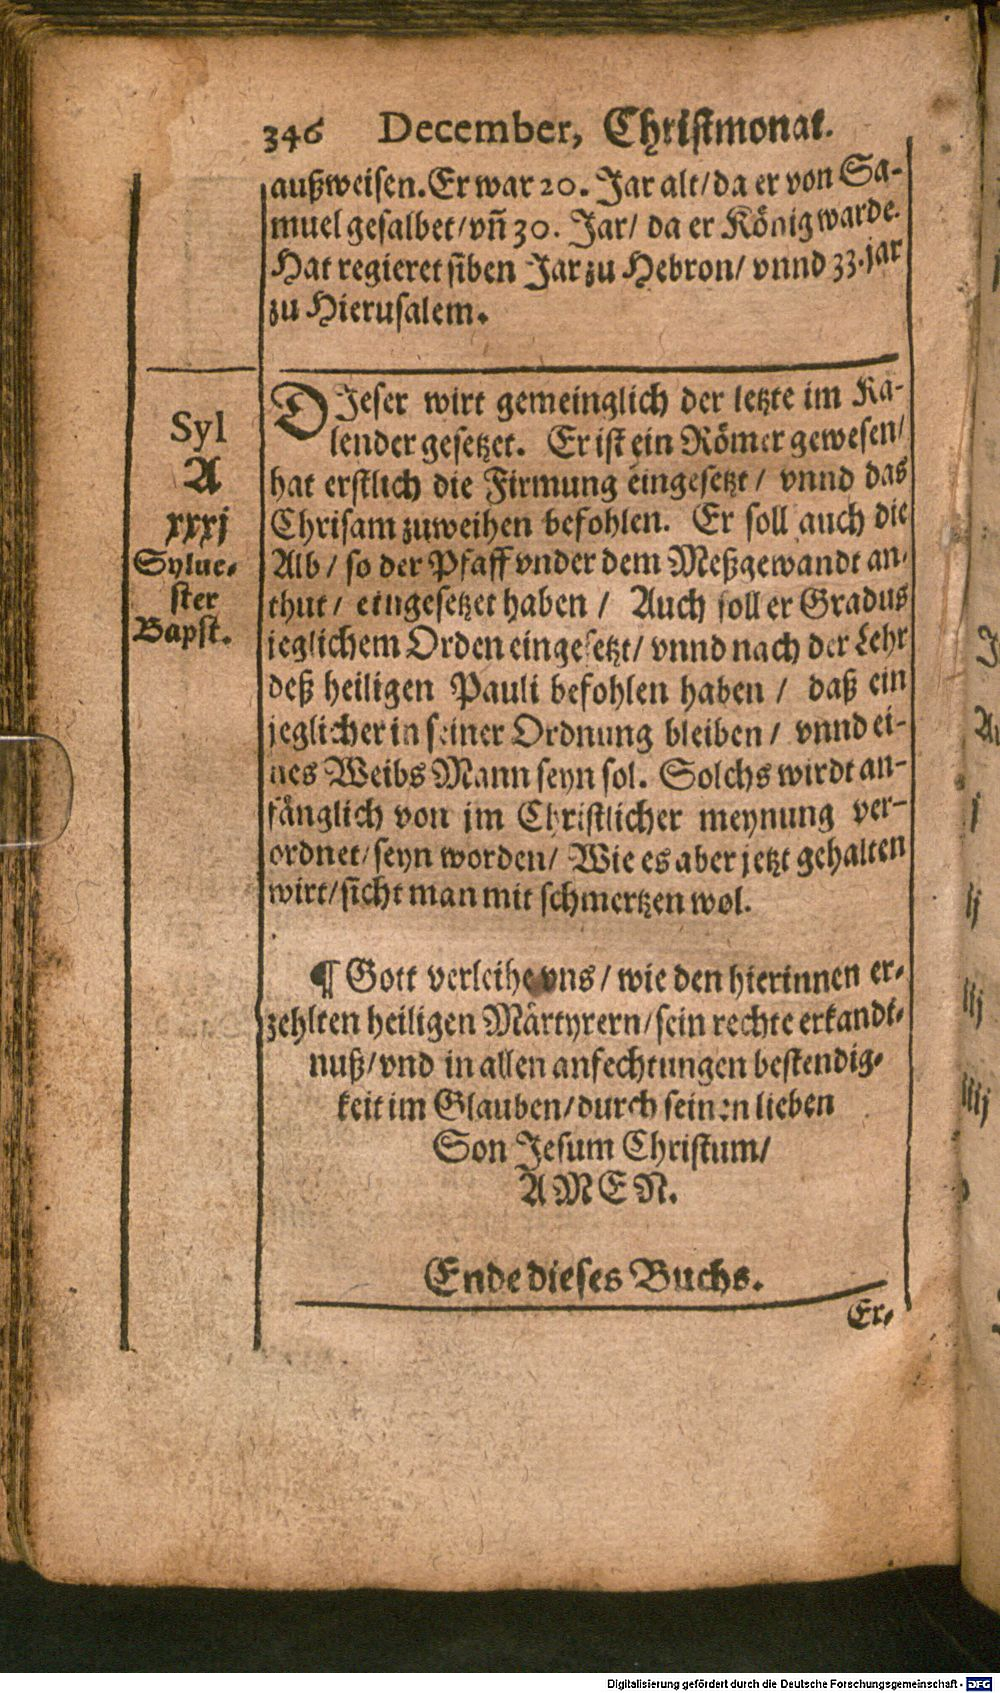 346 December, Christmonat.
außweisen. Er war 20. Jar alt/ da er von Sa-
muel gesalbet/ vñ 30. Jar/ da er König warde.
Hat regieret siben Jar zu Hebron/ vnnd 33. jar
zu Hierusalem.
Syl
A
xxxj
Sylue-
ster
Bapst.
DJeser wirt gemeinglich der letzte im Ka-
lender gesetzet. Er ist ein Römer gewesen/
hat erstlich die Firmung eingesetzt/ vnnd das
Chrisam zuweihen befohlen. Er soll auch die
Alb/ so der Pfaff vnder dem Meßgewandt an-
thut/ eingesetzet haben/ Auch soll er Gradus
jeglichem Orden eingesetzt/ vnnd nach der Lehr
deß heiligen Pauli befohlen haben/ daß ein
jeglicher in seiner Ordnung bleiben/ vnnd ei-
nes Weibs Mann seyn sol. Solchs wirdt an-
fänglich von jm Christlicher meynung ver-
ordnet/ seyn worden/ Wie es aber jetzt gehalten
wirt/ sicht man mit schmertzen wol.
¶ Gott verleihe vns/ wie den hierinnen er-
zehlten heiligen Märtyrern/ sein rechte erkandt-
nuß/ vnd in allen anfechtungen bestendig-
keit im Glauben/ durch seinen lieben
Son Jesum Christum/
AMEN.
Ende dieses Buchs.
Er-
Digitalisierung gefördert durch die Deutsche Forschungsgemeinschaft - DFG